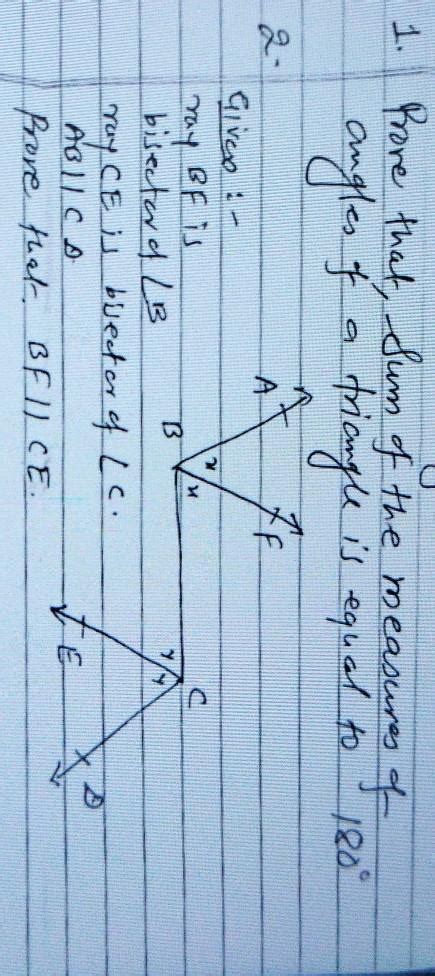 1. Prove that, Sum of the measures of
angles of a triangle is equal to 180°
2.
Given :-
ray BF is
bisector of ∠B
ray CE is bisector of ∠C.
AB || CD
Prove that. BF || CE.
A
F
B
x
x
C
y
y
E
D